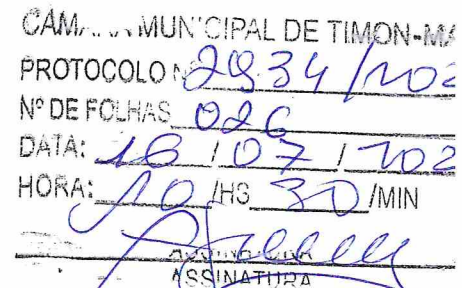 CÂMARA MUNICIPAL DE TIMON-MA
PROTOCOLO Nº 2934 /202
Nº DE FOLHAS 026
DATA: 16 / 07 / 202
HORA: 10 /HS 30 /MIN
ASSINATURA